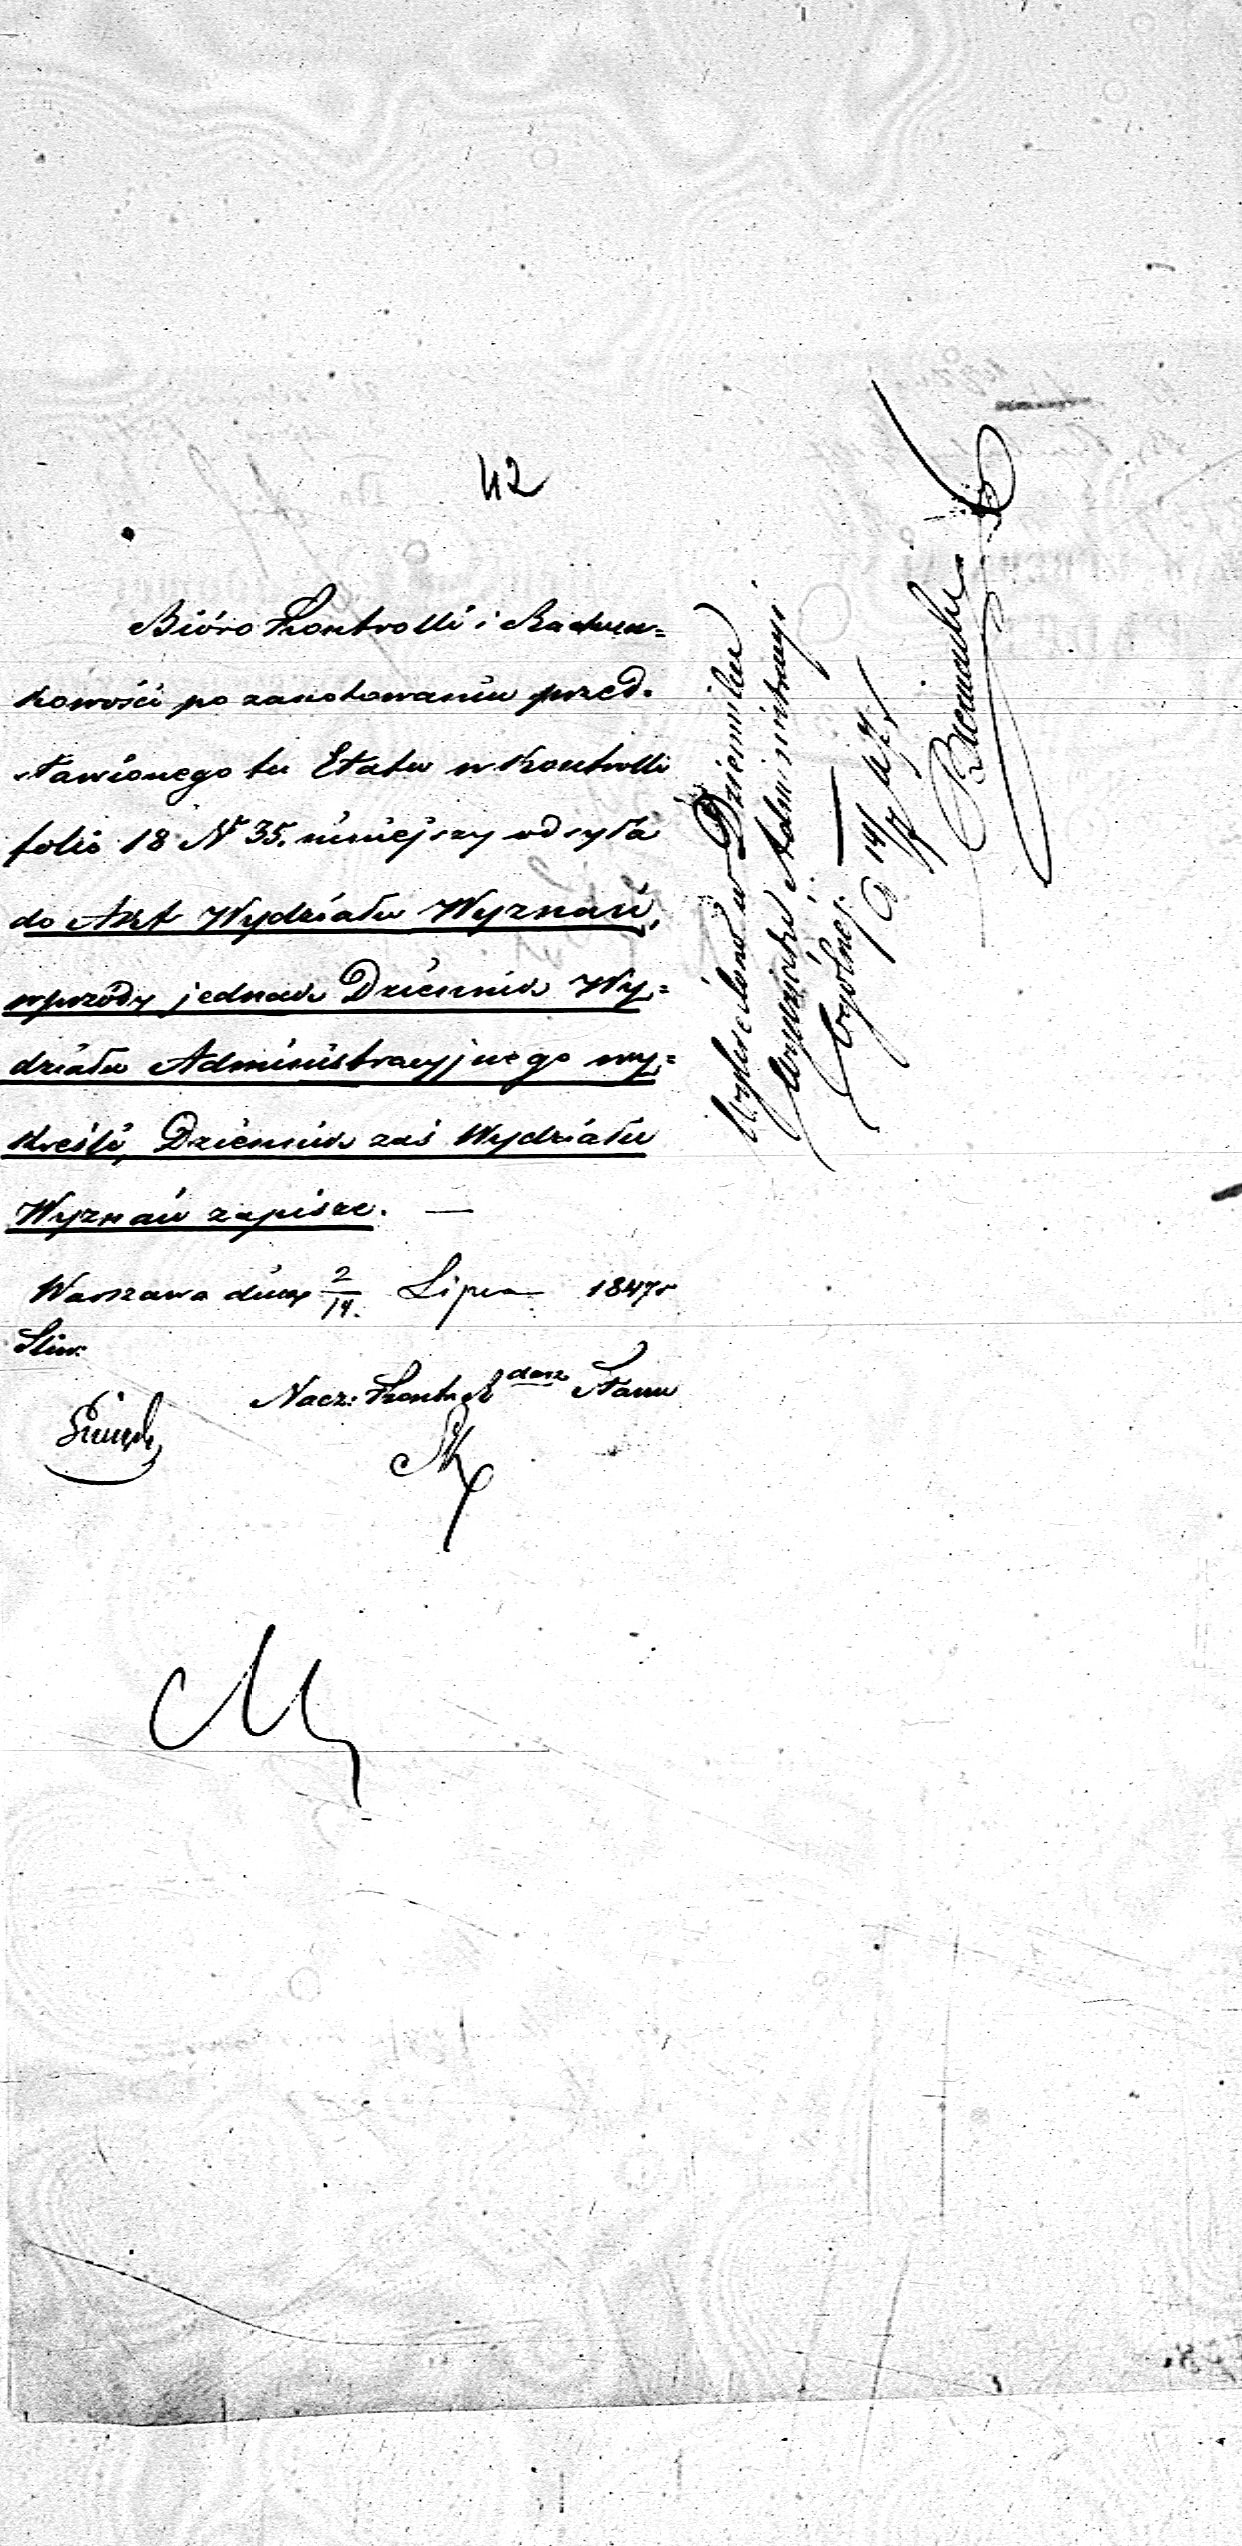 42
Bióro Kontrolli i Rachun=
kowości po zanotowaniu przed=
stawionego tu Etatu w Kontrolli
folio 18 N 35. niniejszy odsyła
do Akt Wydziału Wyznań,
wprzódy jednak Dziennik Wy=
działu Administracyjnego wy=
kreśli, Dziennik zaś Wydziału
Wyznań zapisze. —
Warszawa dnia 2/14. Lipca 1847 r
Nacz: Kontr Stanu
Wykreślono w Dzienniku
Administracyi
Ogólnej. —
D 14/7 47 r